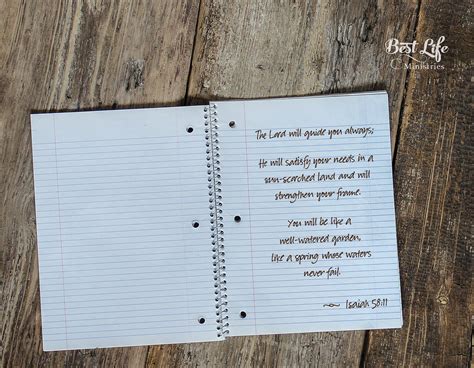 Best Life
Ministries
The Lord will guide you always;
He will satisfy your needs in a
sun-scorched land and will
strengthen your frame.
You will be like a
well-watered garden,
like a spring whose waters
never fail.
~ Isaiah 58:11